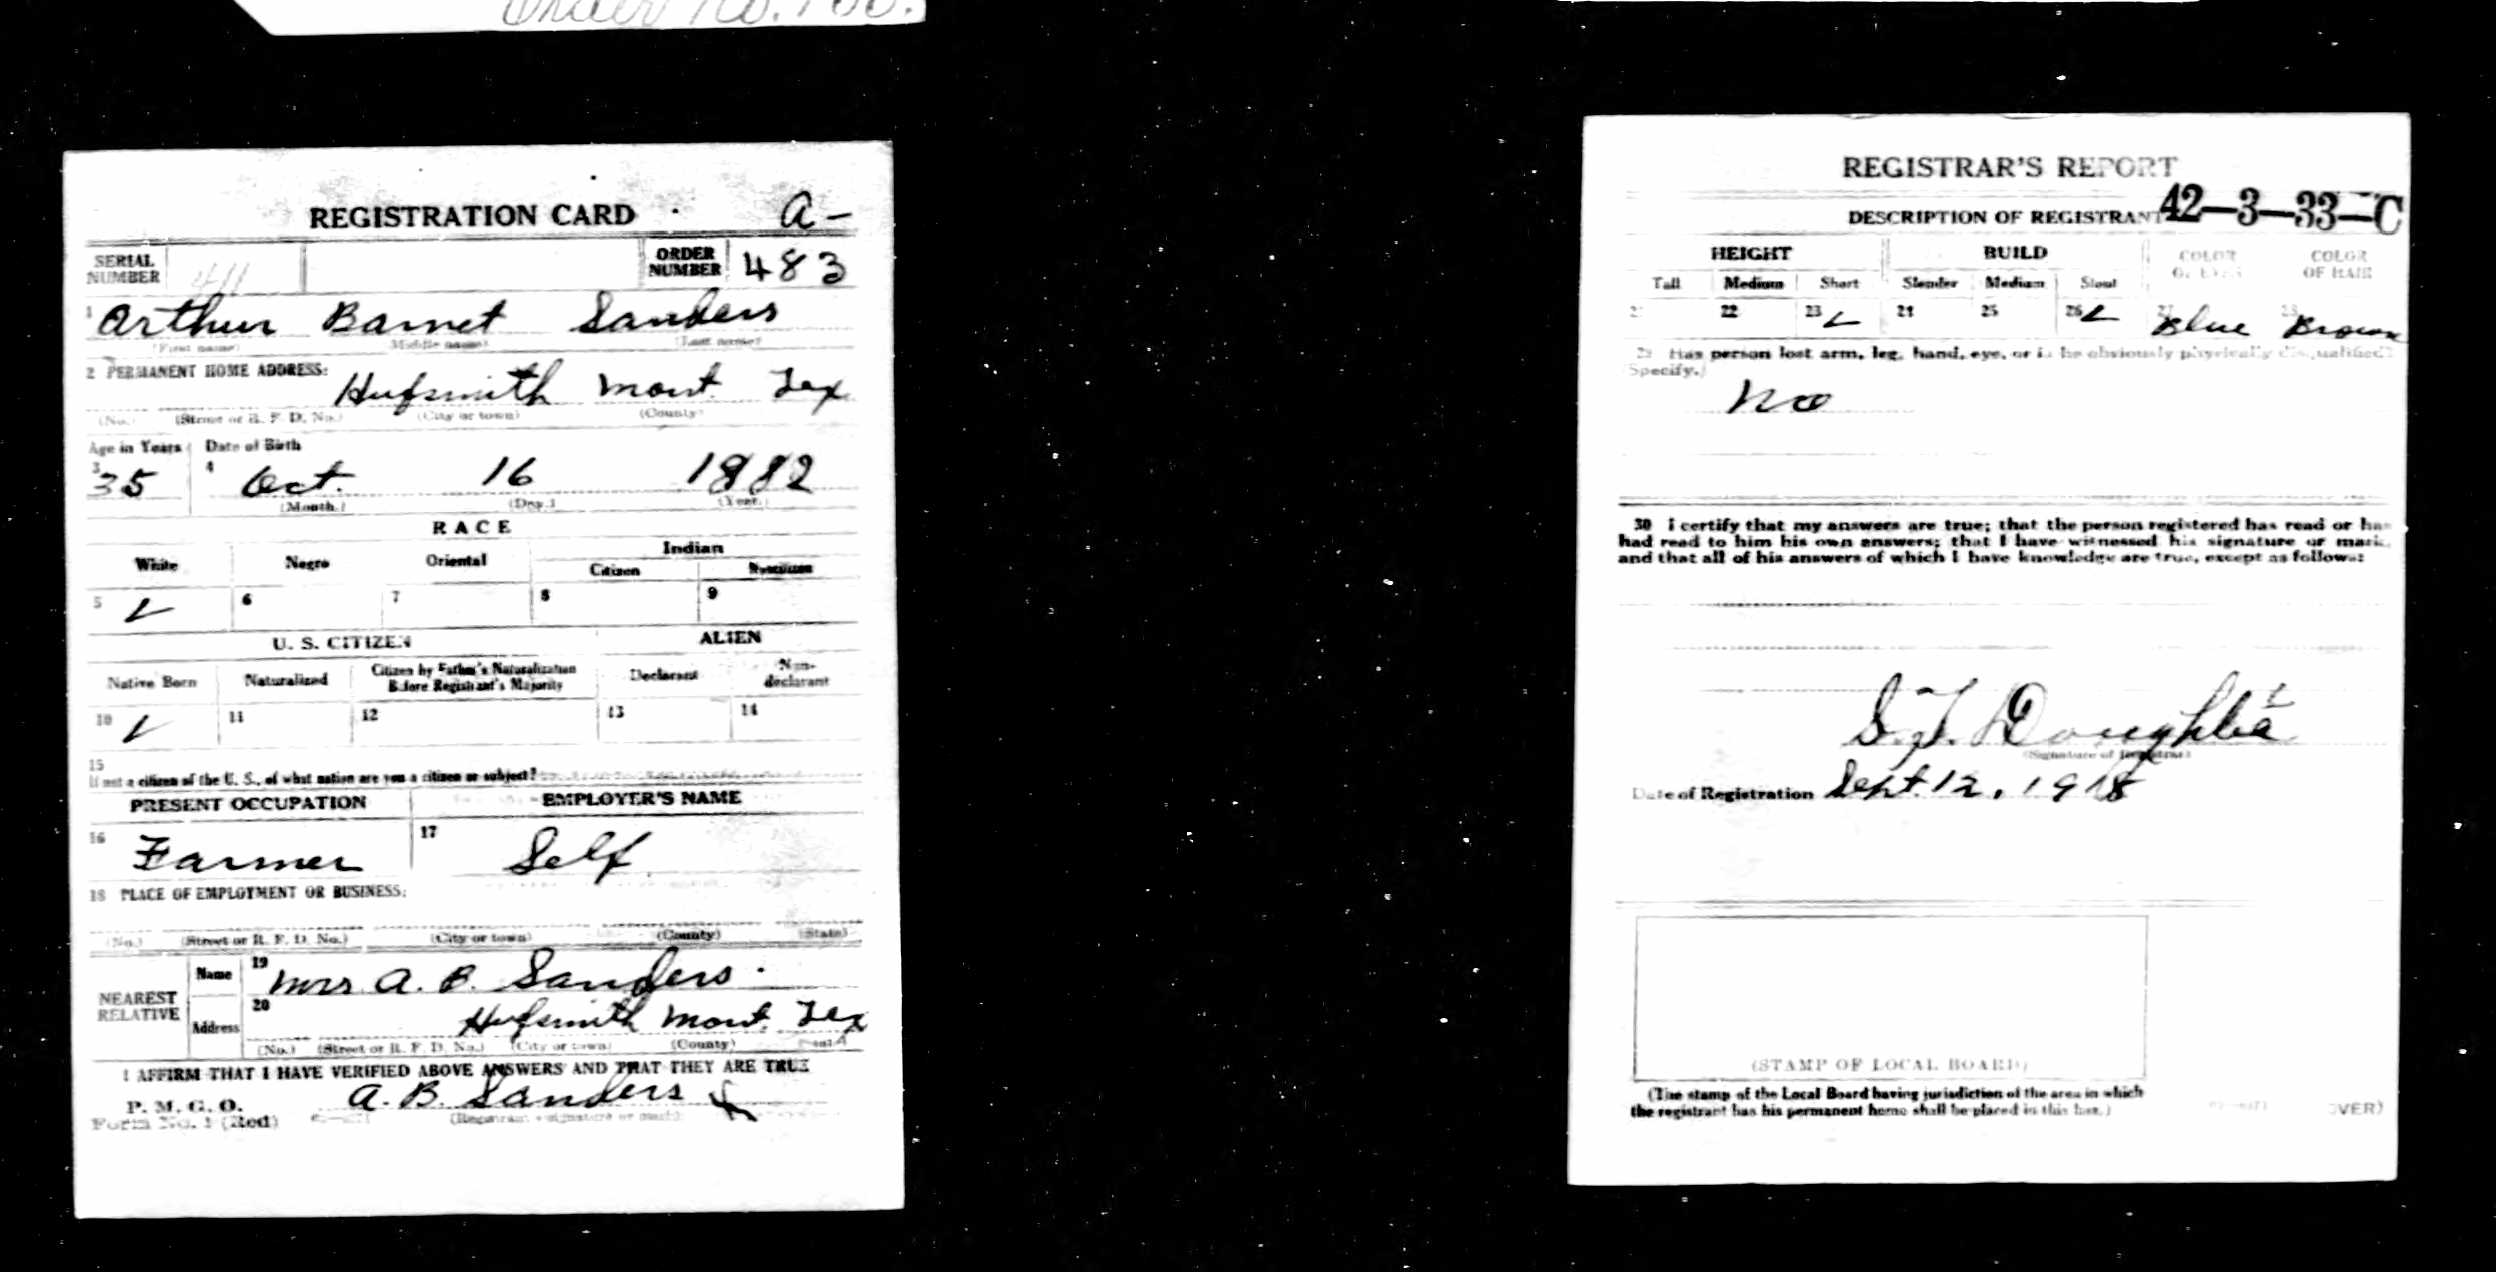 Order No. 100.
REGISTRATION CARD A-
SERIAL NUMBER 411 ORDER NUMBER 483
1 Arthur Barnet Sanders
(First name) (Middle name) (Last name)
2 PERMANENT HOME ADDRESS:
Hufsmith Mont. Tex
(No.) (Street or R. F. D. No.) (City or town) (County)
Age in Years Date of Birth
3 35 4 Oct. 16 1882
(Month.) (Day.) (Year.)
RACE
White Negro Oriental Indian
Citizen Noncitizen
5 6 7 8 9
U. S. CITIZEN ALIEN
Native Born Naturalized Citizen by Father's Naturalization Before Registrant's Majority Declarant Non-declarant
10 11 12 13 14
15
If not a citizen of the U. S., of what nation are you a citizen or subject?
PRESENT OCCUPATION EMPLOYER'S NAME
16 Farmer 17 Self
18 PLACE OF EMPLOYMENT OR BUSINESS:
(No.) (Street or R. F. D. No.) (City or town) (County) (State)
NEAREST RELATIVE Name 19 Mrs A. B. Sanders.
Address 20 Hufsmith Mont. Tex
(No.) (Street or R. F. D. No.) (City or town) (County)
I AFFIRM THAT I HAVE VERIFIED ABOVE ANSWERS AND THAT THEY ARE TRUE
P. M. G. O.
Form No. 1 (Red)
A. B. Sanders
(Registrant's signature or mark)
REGISTRAR'S REPORT
42-3-33-C
DESCRIPTION OF REGISTRANT
HEIGHT BUILD COLOR OF EYES COLOR OF HAIR
Tall Medium Short Slender Medium Stout
21 22 23 24 25 26 27 Blue 28 Brown
29 Has person lost arm, leg, hand, eye, or is he obviously physically disqualified?
(Specify.)
No
30 I certify that my answers are true; that the person registered has read or has
had read to him his own answers; that I have witnessed his signature or mark,
and that all of his answers of which I have knowledge are true, except as follows:
(Signature of Registrar)
Date of Registration Sept. 12, 1918
(STAMP OF LOCAL BOARD)
(The stamp of the Local Board having jurisdiction of the area in which
the registrant has his permanent home shall be placed in this box.)
(OVER)